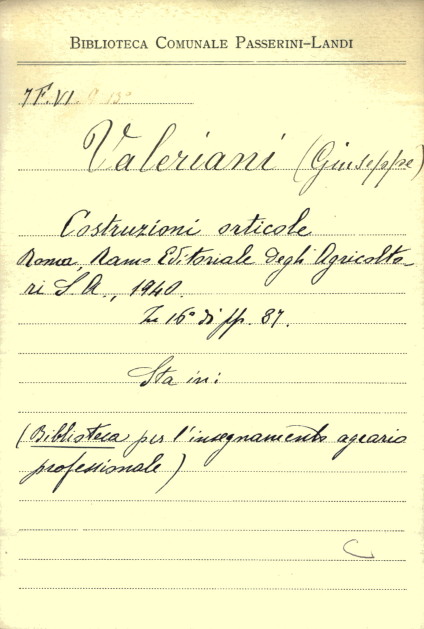 BIBLIOTECA COMUNALE PASSERINI-LANDI
7F.VI
Valeriani (Giuseppe)
Costruzioni orticole
Roma, Ramo Editoriale degli Agricolto-
ri S.A., 1940.
In 16° di pp. 87.
Sta in:
(Biblioteca per l'insegnamento agrario
professionale)
C